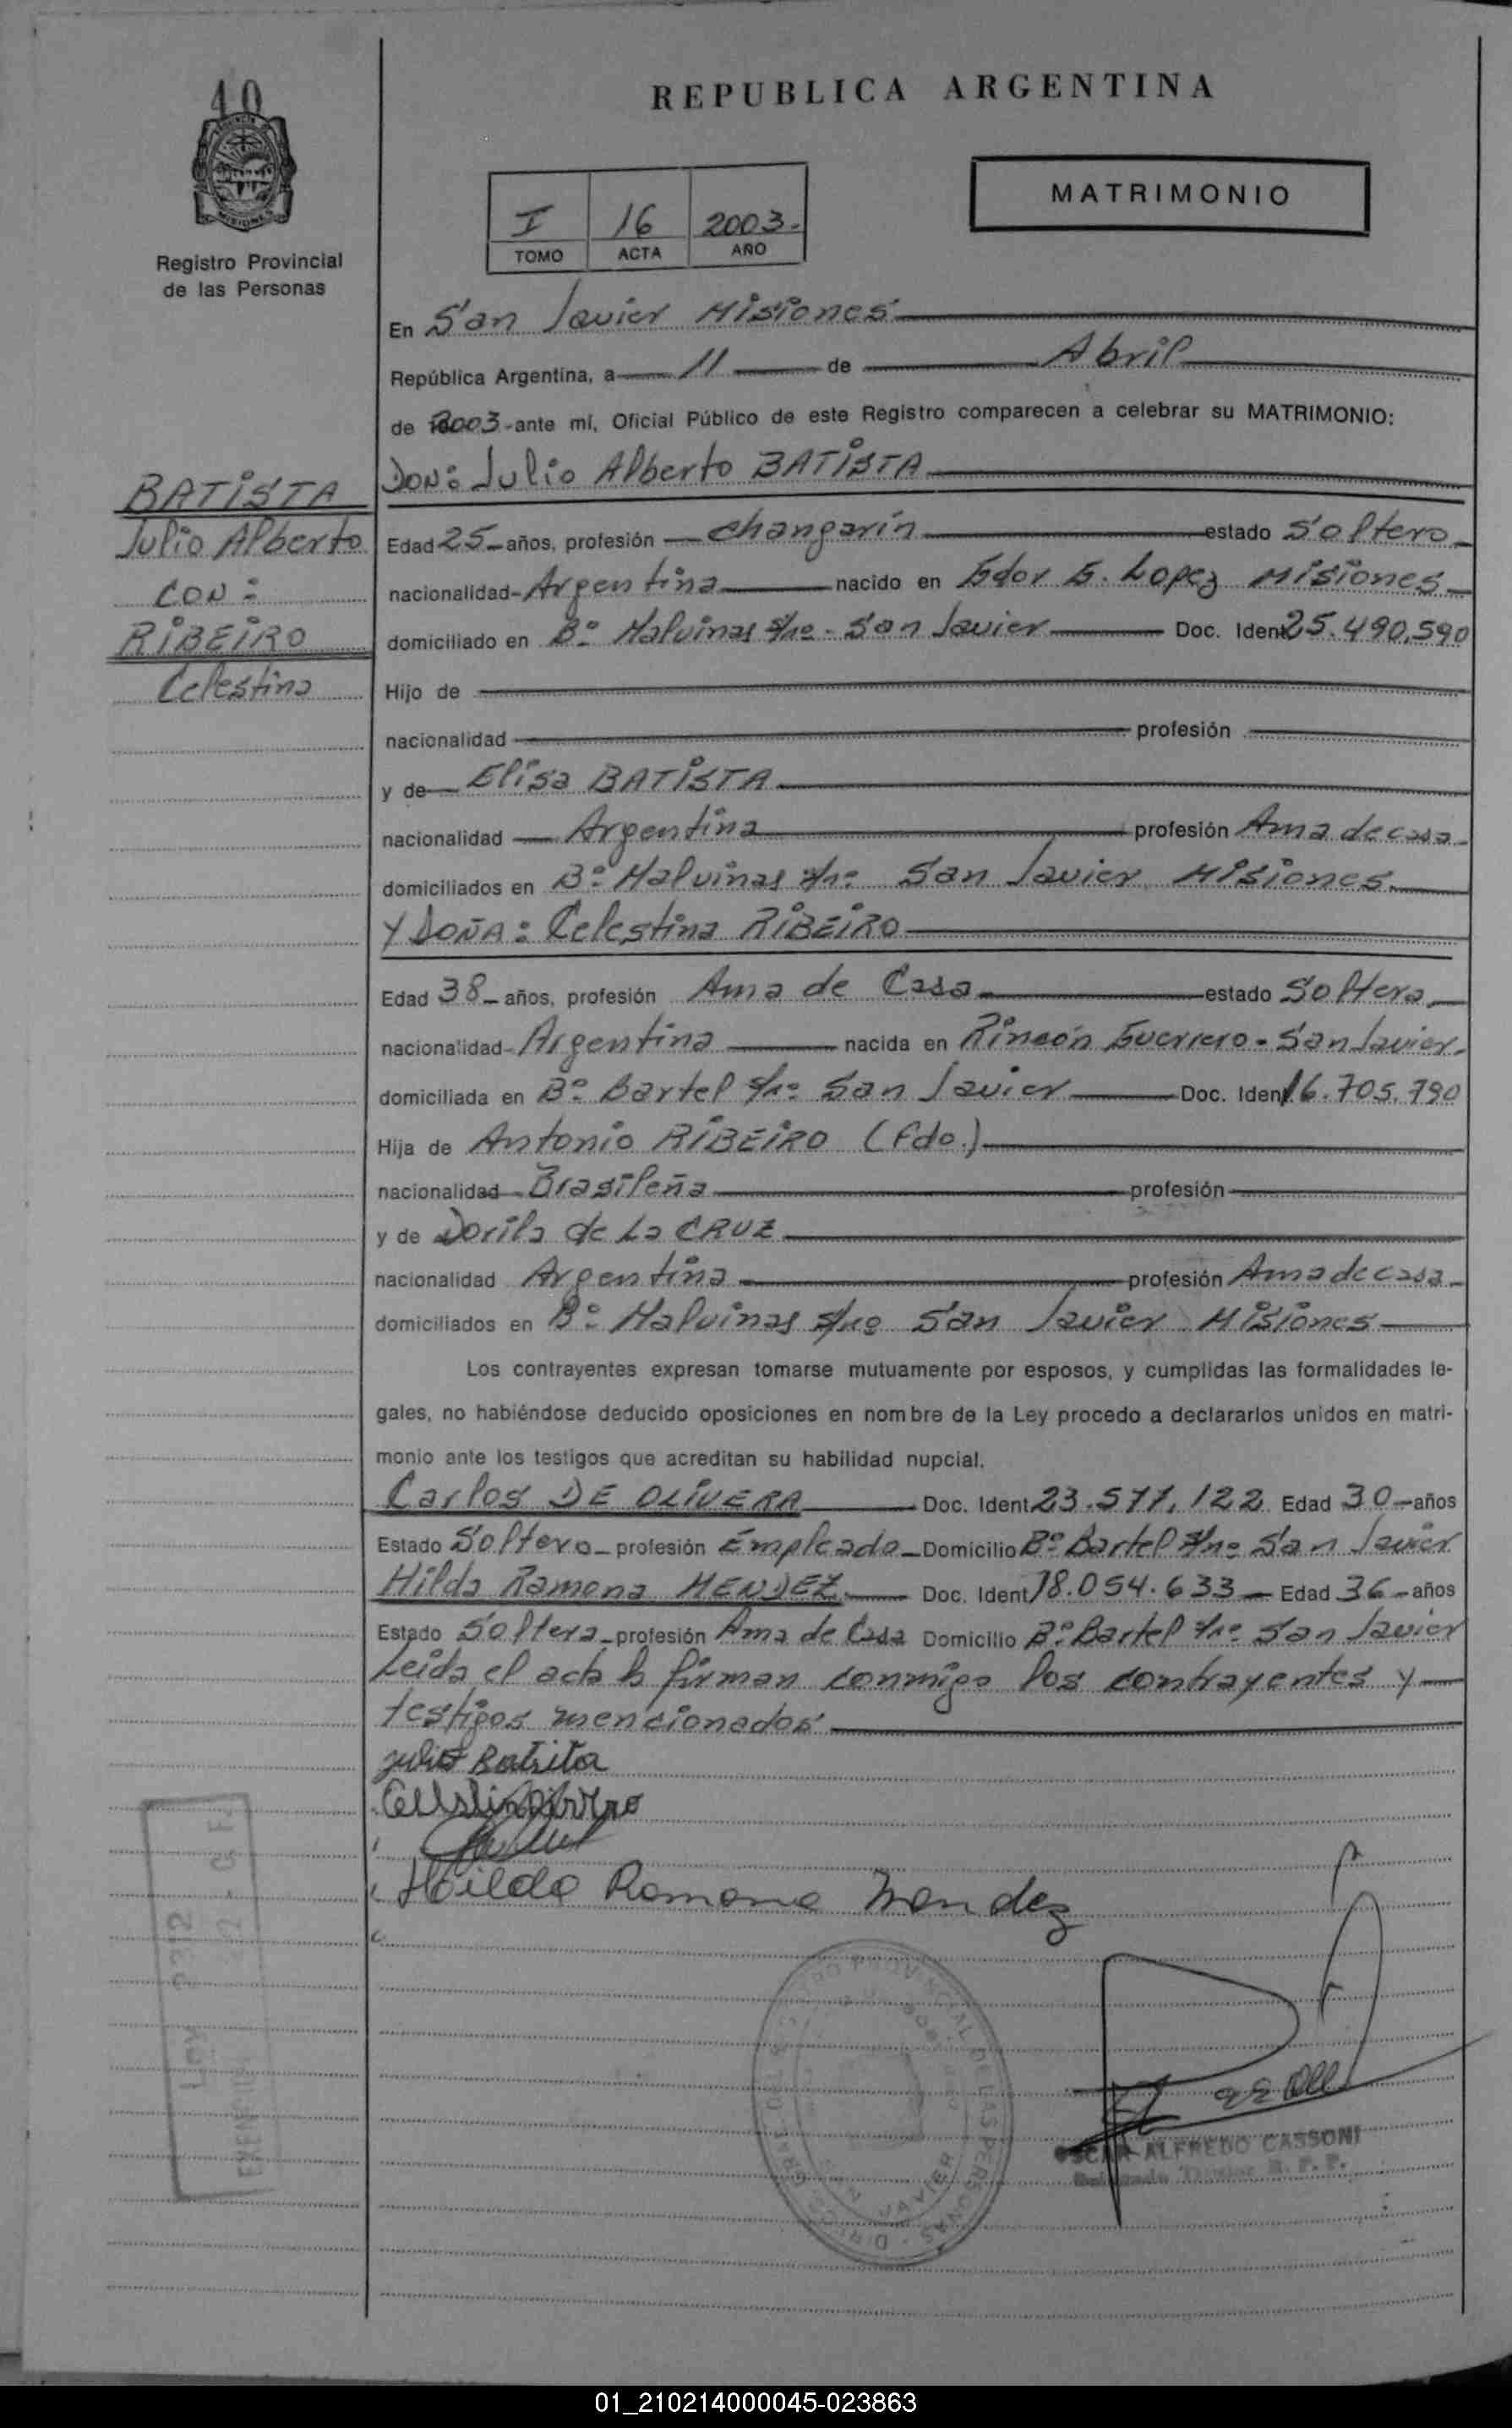 40
MISIONES
Registro Provincial
de las Personas
REPUBLICA ARGENTINA
I 16 2003.-
TOMO ACTA AÑO
MATRIMONIO
En San Javier Misiones
República Argentina, a 11 de Abril
de 2003 - ante mí, Oficial Público de este Registro comparecen a celebrar su MATRIMONIO:
DON: Julio Alberto BATISTA
BATISTA
Julio Alberto
CON:
RIBEIRO
Celestina
Edad 25 años, profesión changarín estado Soltero
nacionalidad Argentina nacido en Gdor G. Lopez Misiones
domiciliado en Bº Malvinas s/nº - San Javier Doc. Ident 25.490.590
Hijo de
nacionalidad profesión
y de Elisa BATISTA
nacionalidad Argentina profesión Ama de casa
domiciliados en Bº Malvinas s/nº San Javier Misiones
Y DOÑA: Celestina RIBEIRO
Edad 38 años, profesión Ama de Casa estado Soltera
nacionalidad Argentina nacida en Rincón Guerrero - San Javier
domiciliada en Bº Bartel s/nº San Javier Doc. Ident 16.705.790
Hija de Antonio RIBEIRO (fdo.)
nacionalidad Brasileña profesión
y de Dorila de La CRUZ
nacionalidad Argentina profesión Ama de casa
domiciliados en Bº Malvinas s/nº San Javier Misiones
Los contrayentes expresan tomarse mutuamente por esposos, y cumplidas las formalidades le-
gales, no habiéndose deducido oposiciones en nombre de la Ley procedo a declararlos unidos en matri-
monio ante los testigos que acreditan su habilidad nupcial.
Carlos DE OLIVERA Doc. Ident 23.577.122 Edad 30 años
Estado Soltero profesión Empleado Domicilio Bº Bartel s/nº San Javier
Hilda Ramona MENDEZ Doc. Ident 18.054.633 Edad 36 años
Estado Soltera profesión Ama de Casa Domicilio Bº Bartel s/nº San Javier
Leída el acta la firman conmigo los contrayentes y
testigos mencionados
Julio Batista
Hilda Ramona Mendez
OSCAR ALFREDO CASSONI
01_210214000045-023863